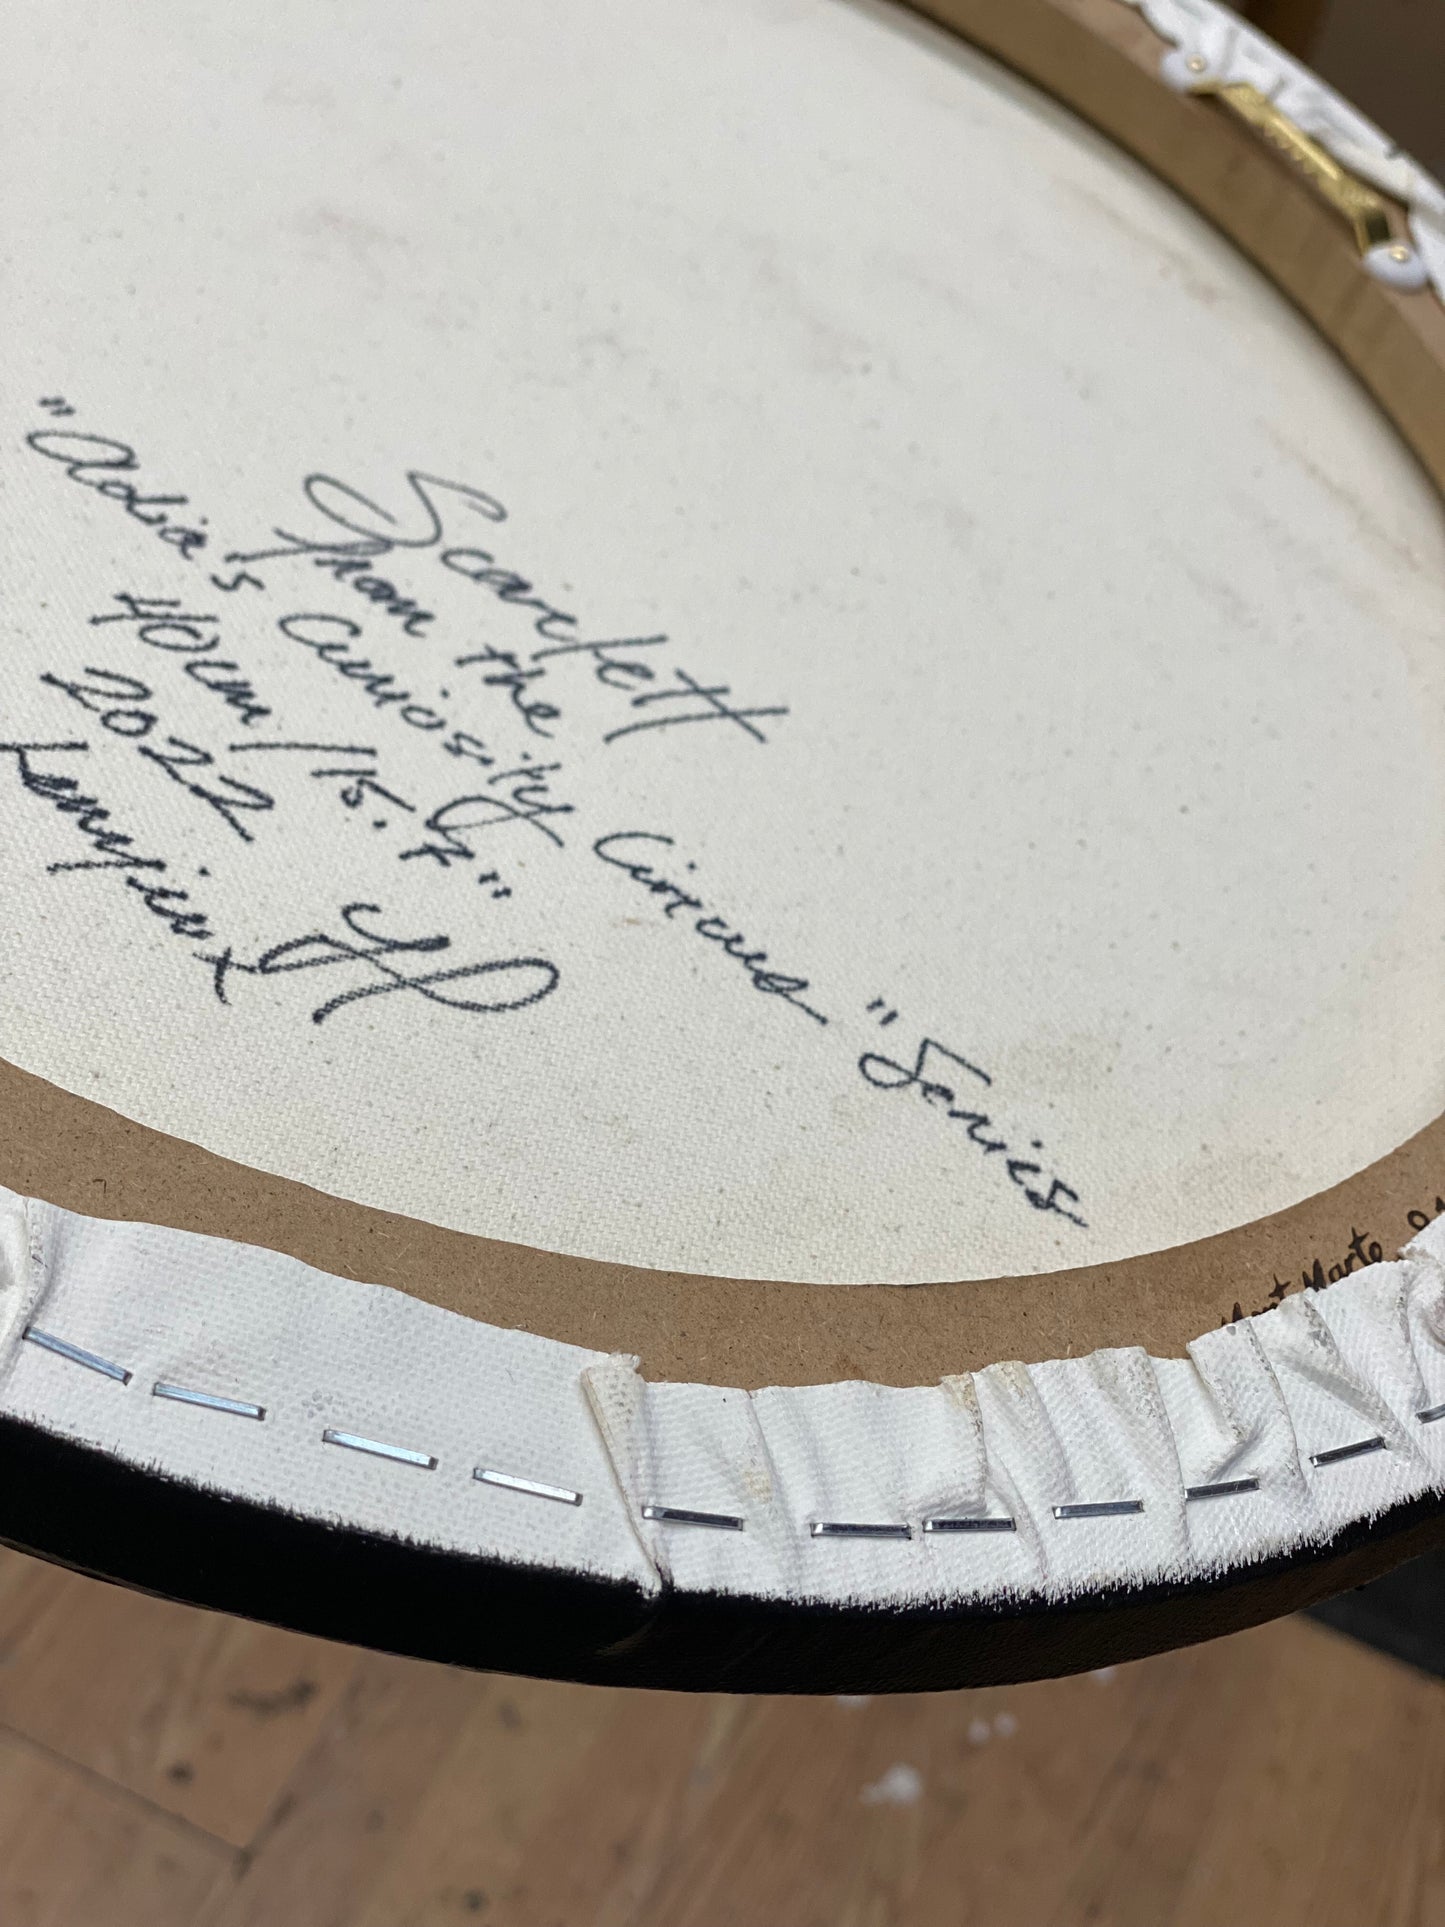 Scarlett
From the
"Adia's Curiosity Circus" Series
40cm / 15.7"
2022
Mont Marte